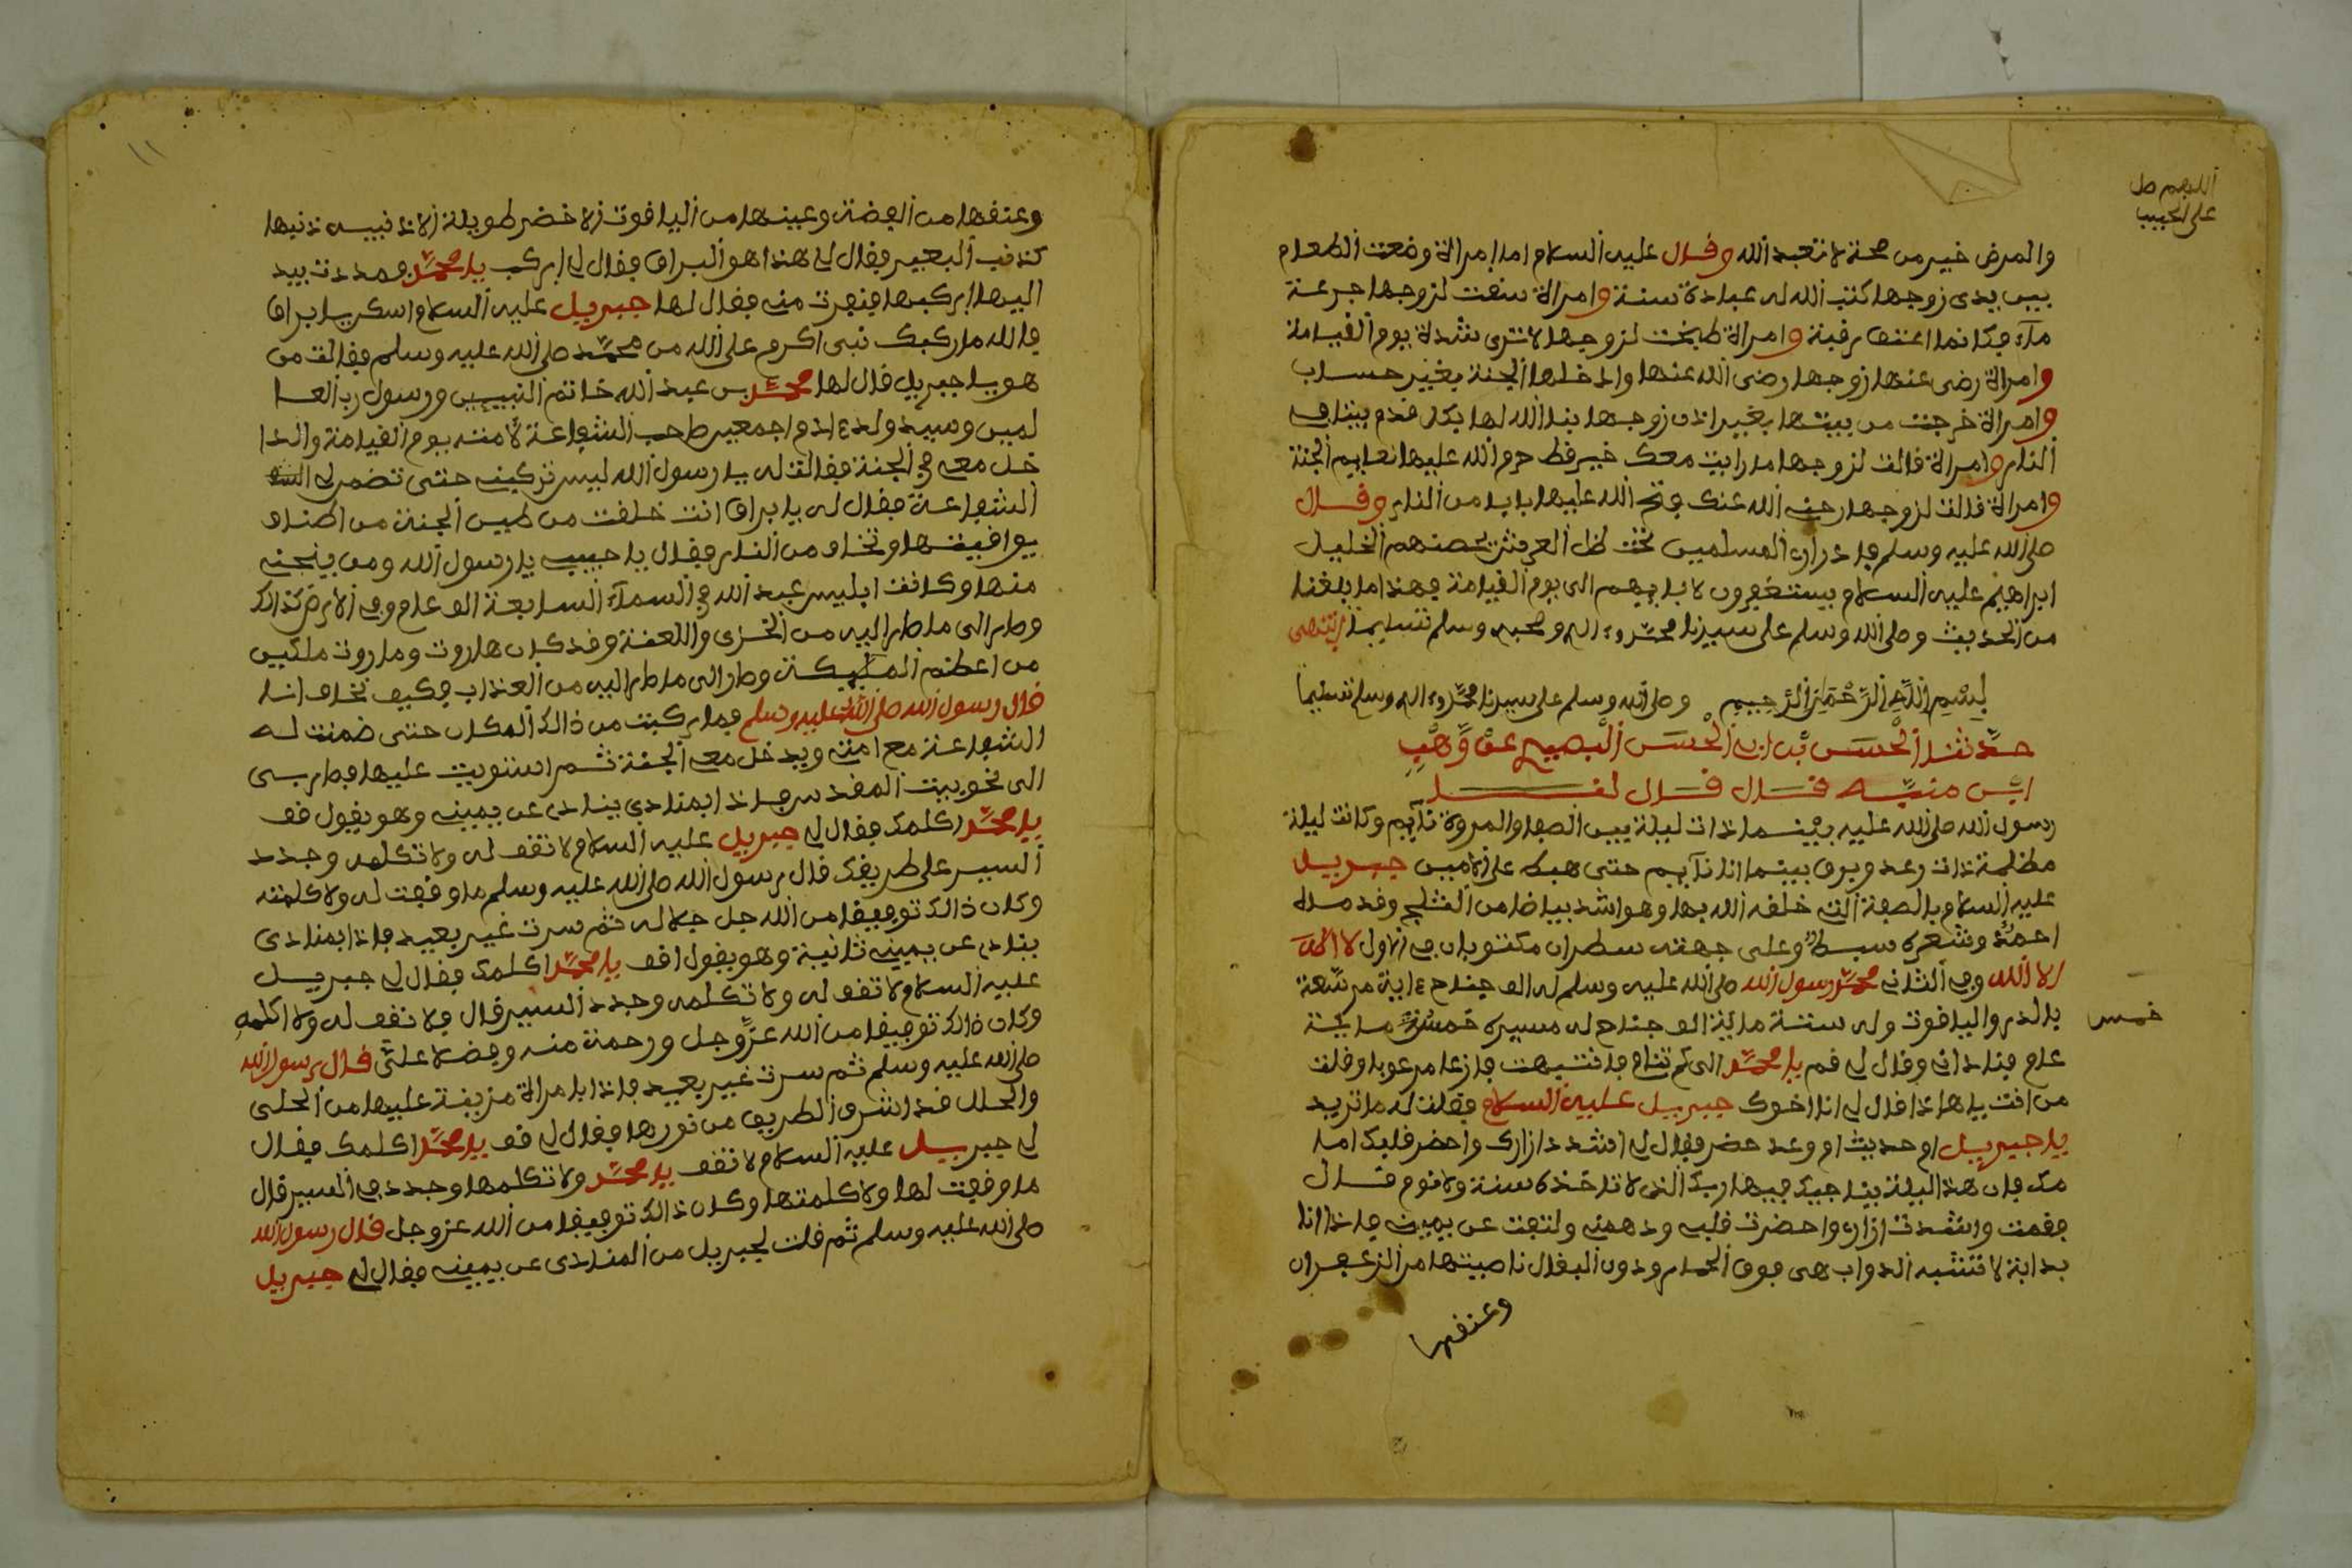 اللهم صل
على الحبيب
والمرض خير من صحة لا تعبد الله وقال عليه السلام اما امراة وضعت الطعام
بين يدى زوجها كتب الله له عبادة سنة وامراة سقت لزوجها جرعة
ماء فكانما اعتق رقبة وامراة طبخت لزوجها لا ترى شدة يوم القيامة
وامراة رضى عنها زوجها رضى الله عنها وادخلها الجنة بغير حساب
وامراة خرجت من بيتها بغير اذن زوجها بنا الله لها بكل قدم بيتا في
النار وامراة قالت لزوجها ما رايت معك خير قط حرم الله عليها نعايم الجنة
وامراة قالت لزوجها الله عنك فتح الله عليها بابا من النار وقال
صلى الله عليه وسلم المسلمين تحت ظل العرش الخليل
ابراهيم عليه السلام يستغفرون لابايهم الى يوم القيامة فهذا ما بلغنا
من الحديث وصلى الله وسلم على سيدنا محمد وءاله وصحبه وسلم تسليما انتهى
بسم الله الرحمن الرحيم وصلى الله وسلم على سيدنا محمد وءاله وسلم تسليما
حدثنا الحسن بن ابى الحسن البصرى عن وهب
ابن منبه قال قال لقد
رسول الله صلى الله عليه بينما ذات ليلة بين الصفا والمروة نآيم وكانت ليلة
مظلمة ذات رعد وبرق بينما انا نآيم حتى هبط على الامين جبريل
عليه السلام بالصفة التى خلقه الله بها وهو اشد بياضا من الثلج وقد
احمر وشعره سبط وعلى جهته سطران مكتوبان في الاول لا اله
الا الله وفى الثانى محمد رسول الله صلى الله عليه وسلم له الف جناح
بالدر والياقوت وله ستة ماية الف جناح له مسيرة خمس ماية
خمس
عام فنادانى وقال لى قم يا محمد الى كم تنام فانتبهت فازعا مرعوبا وقلت
من انت يا هاذا قال لى انا اخوك جبريل عليه السلام فقلت له ما تريد
يا جبريل ام حديث ام وعد حضر فقال لى اشدد ازارك واحضر قلبك
فان هذا اليلة يناجيك فيها ربك الذى لا تاخذه سنة ولا نوم قال
فقمت واشدت ازارى واحضرت قلبى وذهنى ولتفت عن يمينى فاذا انا
بدابة لا تشبه الدواب هى فوق الحمار ودون البغال ناصيتها من الزعفران
وعنقها
١١
وعنقها من الفضة وعينها من الياقوت الاخضر طويلة الاذنيين ذنبها
كذنب البعير فقال لى هذا هو البراق فقال لى اركب يا محمد فمددت بيد
اليها اركبها فنفرت منى فقال لها جبريل عليه السلام اسكن يا براق
فوالله ما ركبك نبى اكرم على الله من محمد صلى الله عليه وسلم فقالت من
هو يا جبريل قال لها محمد بن عبد الله خاتم النبيين ورسول رب العا
لمين وسيد ولد ءادم اجمعين صاحب الشفاعة لامته يوم القيامة والدا
خل معه في الجنة فقالت له يا رسول الله ليس تركبنى حتى تضمن لى
الشفاعة فقال له يا براق انت خلقت من طين الجنة من اصناف
يواقيتها وتخاف من النار فقال يا حبيبى يا رسول الله ومن ينجنى
منها وكانت ابليس عبد الله فى السماء السابعة الف عام وفى الارض كذالك
وصار الى ما صار اليه من الخزى واللعنة وقد كان هاروت وماروت ملكين
من اعظم المليكة وصار الى ما صار اليه من العذاب وكيف نخاف انا
قال رسول الله صلى الله عليه وسلم فما ركبت من ذالك المكان حتى ضمنت له
الشفاعة مع امتى ويدخل معى الجنة ثم استويت عليها فطار بى
الى نحو بيت المقدس فاذا بمنادي ينادى عن يمينى وهو يقول قف
يا محمد اكلمك فقال لى جبريل عليه السلام لا تقف له ولا تكلمه وجدد
السير على طريقك قال رسول الله صلى الله عليه وسلم ما وقفت له ولا كلمته
وكان ذالك توفيقا من الله جل جلاله ثم سرت غير بعيد فاذا بمنادى
ينادى عن يمينى ثانية وهو يقول اقف يا محمد اكلمك فقال لى جبريل
عليه السلام لا تقف له ولا تكلمه وجدد السير قال فلا نقف له ولا اكلمه
وكان ذالك توفيقا من الله عز وجل ورحمة منه وفضلا على قال رسول الله
صلى الله عليه وسلم ثم سرت غير بعيد فاذا بامراة مزينة عليها من الحلى
والحلل قد اشرق الطريق من نورها فقال لى قف يا محمد اكلمك فقال
لى جبريل عليه السلام لا تقف يا محمد ولا تكلمها وجدد في السير قال
ما وقفت لها ولا كلمتها وكان ذالك توفيقا من الله عز وجل قال رسول الله
صلى الله عليه وسلم ثم قلت لجبريل من المنادى عن يمينى فقال لى جبريل